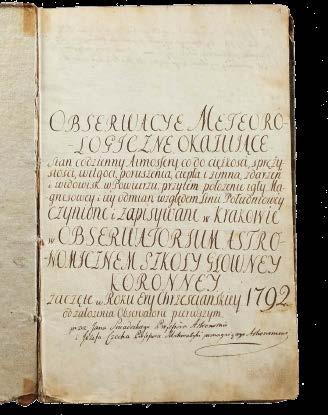 OBSERWACYE METEORO-
-LOGICZNE OKAZUIĄCE
Stan codzienny Atmosfery co do ciężkości, spręży-
stości, wilgoci, poruszenia, ciepła i zimna, zdarzeń
i widowisk w Powietrzu, przytem położenie igły Ma-
gnesowey i iey odmian względem Linii Południowey
CZYNIONE i ZAPISYWANE w KRAKOWIE
w OBSERWATORIUM ASTRO-
NOMICZNEM SZKOŁY GŁOWNEY
KORONNEY
zaczęte w Roku Ery Chrześcianskiey 1792
od założenia Obserwatorii pierwszym
przez Jana Sniadeckiego Professora Astronomii
i Jozefa Czecha Professora Matematyki pomagaiącego Astronomowi